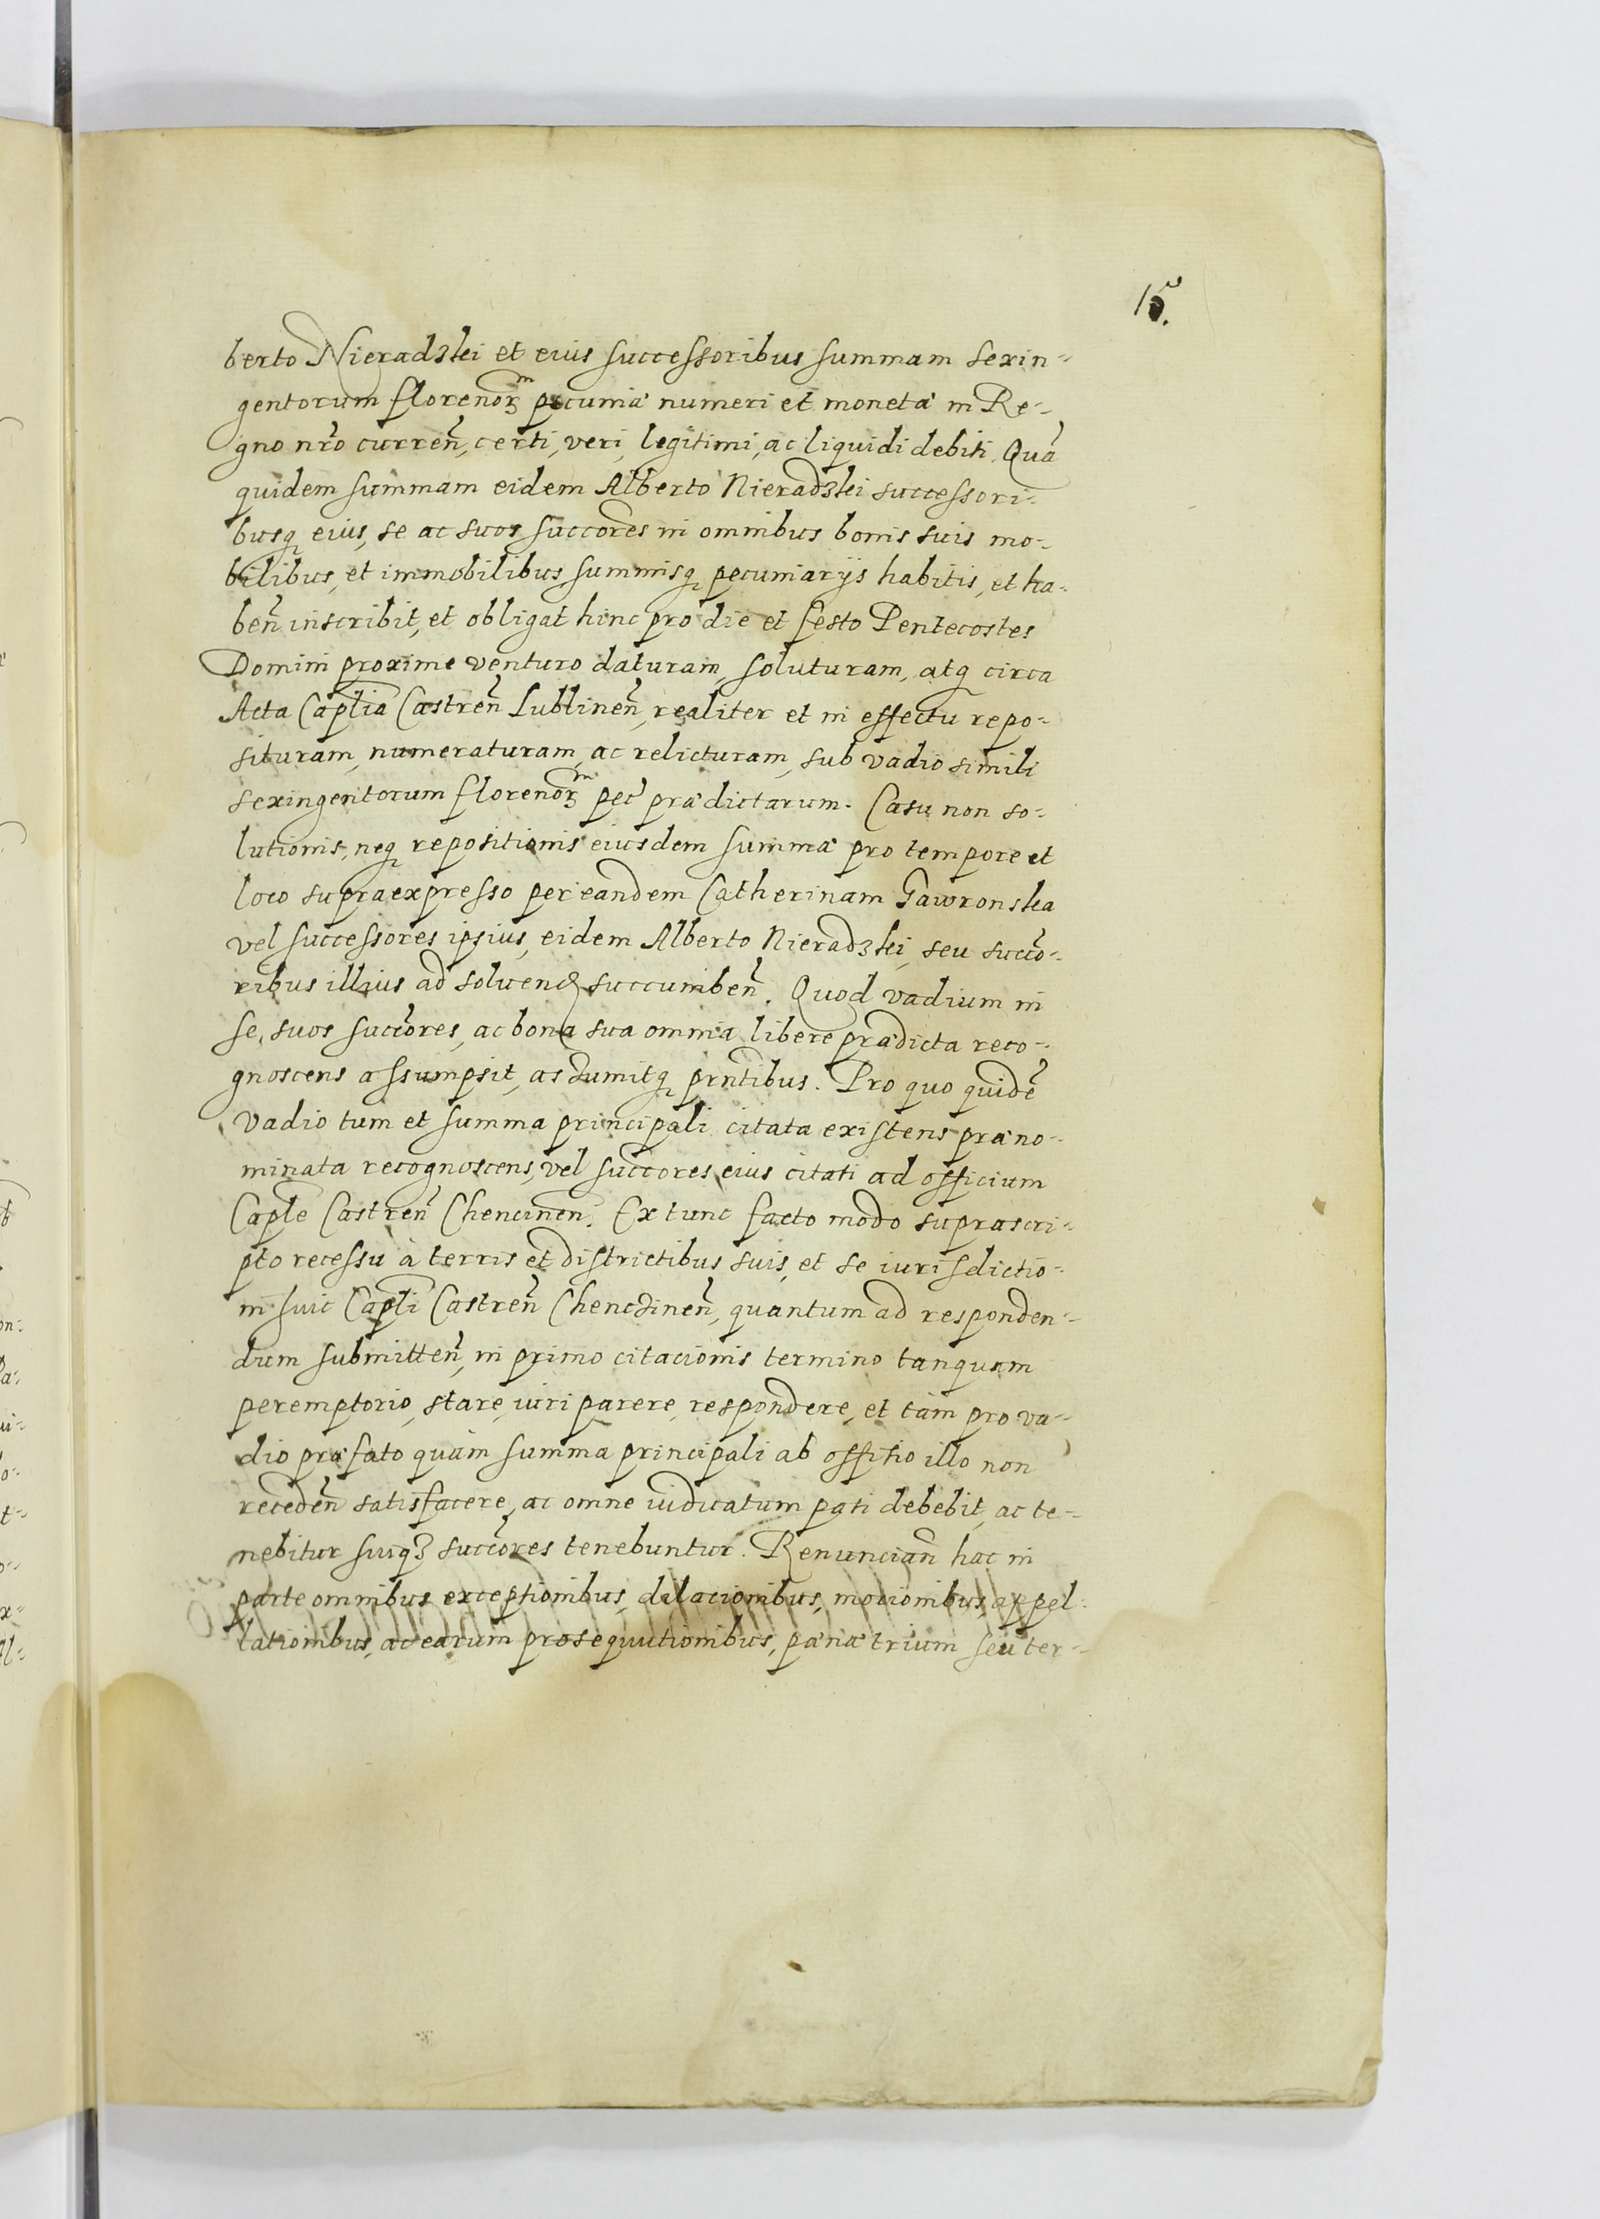 15.
berto Nieradzki et eius successoribus summam sexin-
gentorum florenorum pecuniæ numeri et monetæ in Re-
gno nrō curren̄, certi, veri, legitimi, ac liquidi debiti. Quā
quidem summam eidem Alberto Nieradzki successori-
busq eius, se ac suos succōres in omnibus bonis suis mo-
bilibus, et immobilibus summisq pecuniarijs habitis, et ha-
ben̄ inscribit, et obligat hinc pro die et festo Pentecostes
Domini proxime venturo daturam, soluturam, atq circa
Acta Capl̄ia Castren̄ Lublinen̄, realiter et in effectu repo-
situram, numeraturam, ac relicturam, sub vadio simili
sexingentorum florenorum pec̄ prædictarum. Casu non so-
lutionis, neq repositionis eiusdem summæ pro tempore et
loco supraexpresso per eandem Catherinam Gawronska
vel successores ipsius, eidem Alberto Nieradzki, seu succō-
ribus illius ad soluend succumben̄. Quod vadium in
se, suos succōres, ac bona sua omnia libere prædicta reco-
gnoscens assumpsit, assumitq prn̄tibus. Pro quo quidē
vadio tum et summa principali citata existens præno-
minata recognoscens, vel succōres eius citati ad officium
Capl̄e Castren̄ Chencinen̄. Ex tunc facto modo suprascri-
pto recessu à terris et districtibus suis, et se iurisdictio-
ni huic Capl̄i Castren̄ Chencinen̄, quantum ad responden-
dum submitten̄, in primo citacionis termino tanquam
peremptorio, stare, iuri parere, respondere, et tàm pro va-
dio præfato quàm summa principali ab offitio illo non
receden̄ satisfacere, ac omne iudicatum pati debebit, ac te-
nebitur suiq3 succōres tenebuntur. Renuncian̄ hac in
parte omnibus exceptionibus, dilacionibus, mocionibus, appel-
lationibus, ac earum prosequutionibus, pænæ trium seu ter-